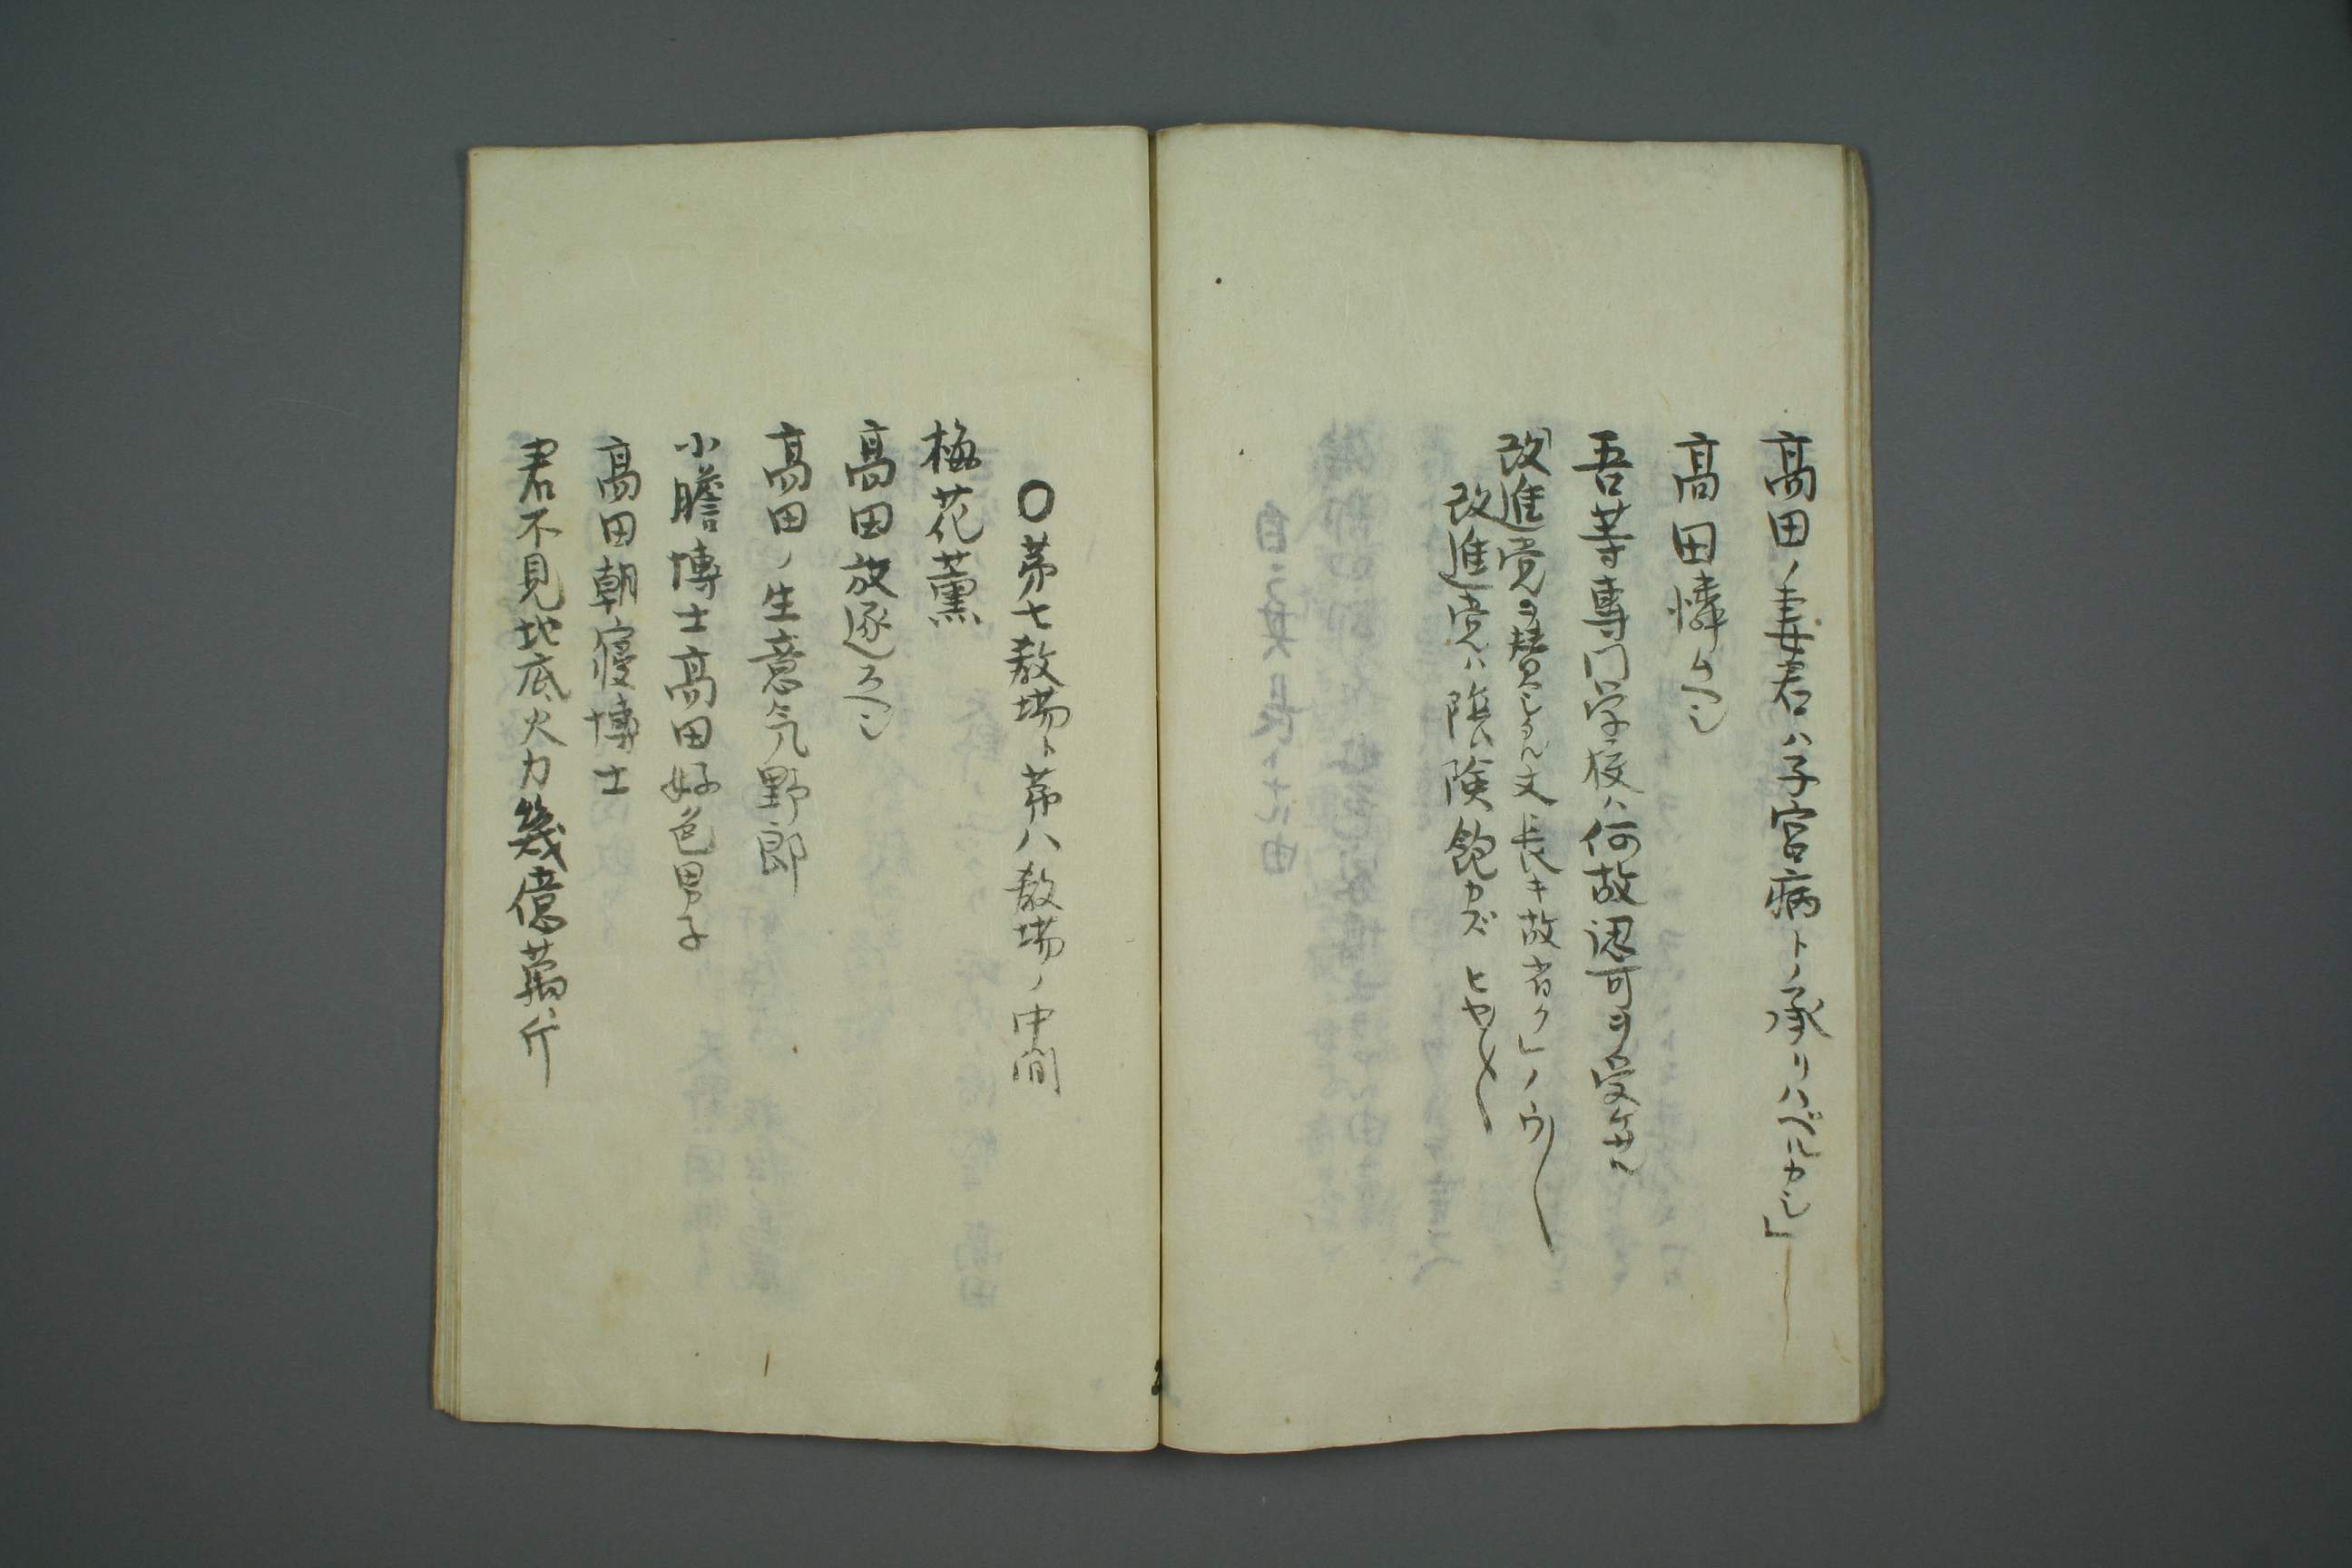 高田ノ妻君ハ子宮病トノ承リハベルカシ」
高田憐ムべし
吾等専門学校ハ何故認可ヲ受ケ
改進党ヲ賛シ文長キ故省ク」ノウ
改進党ハ陰険飽カズ ヒヤ〱
〇第七教場ト第八教場ノ中間
梅花薫
高田放逐スべし
高田ノ生意気野郎
小膽博士高田好色男子
高田朝寝博士
君不見地底火力幾億萬斤